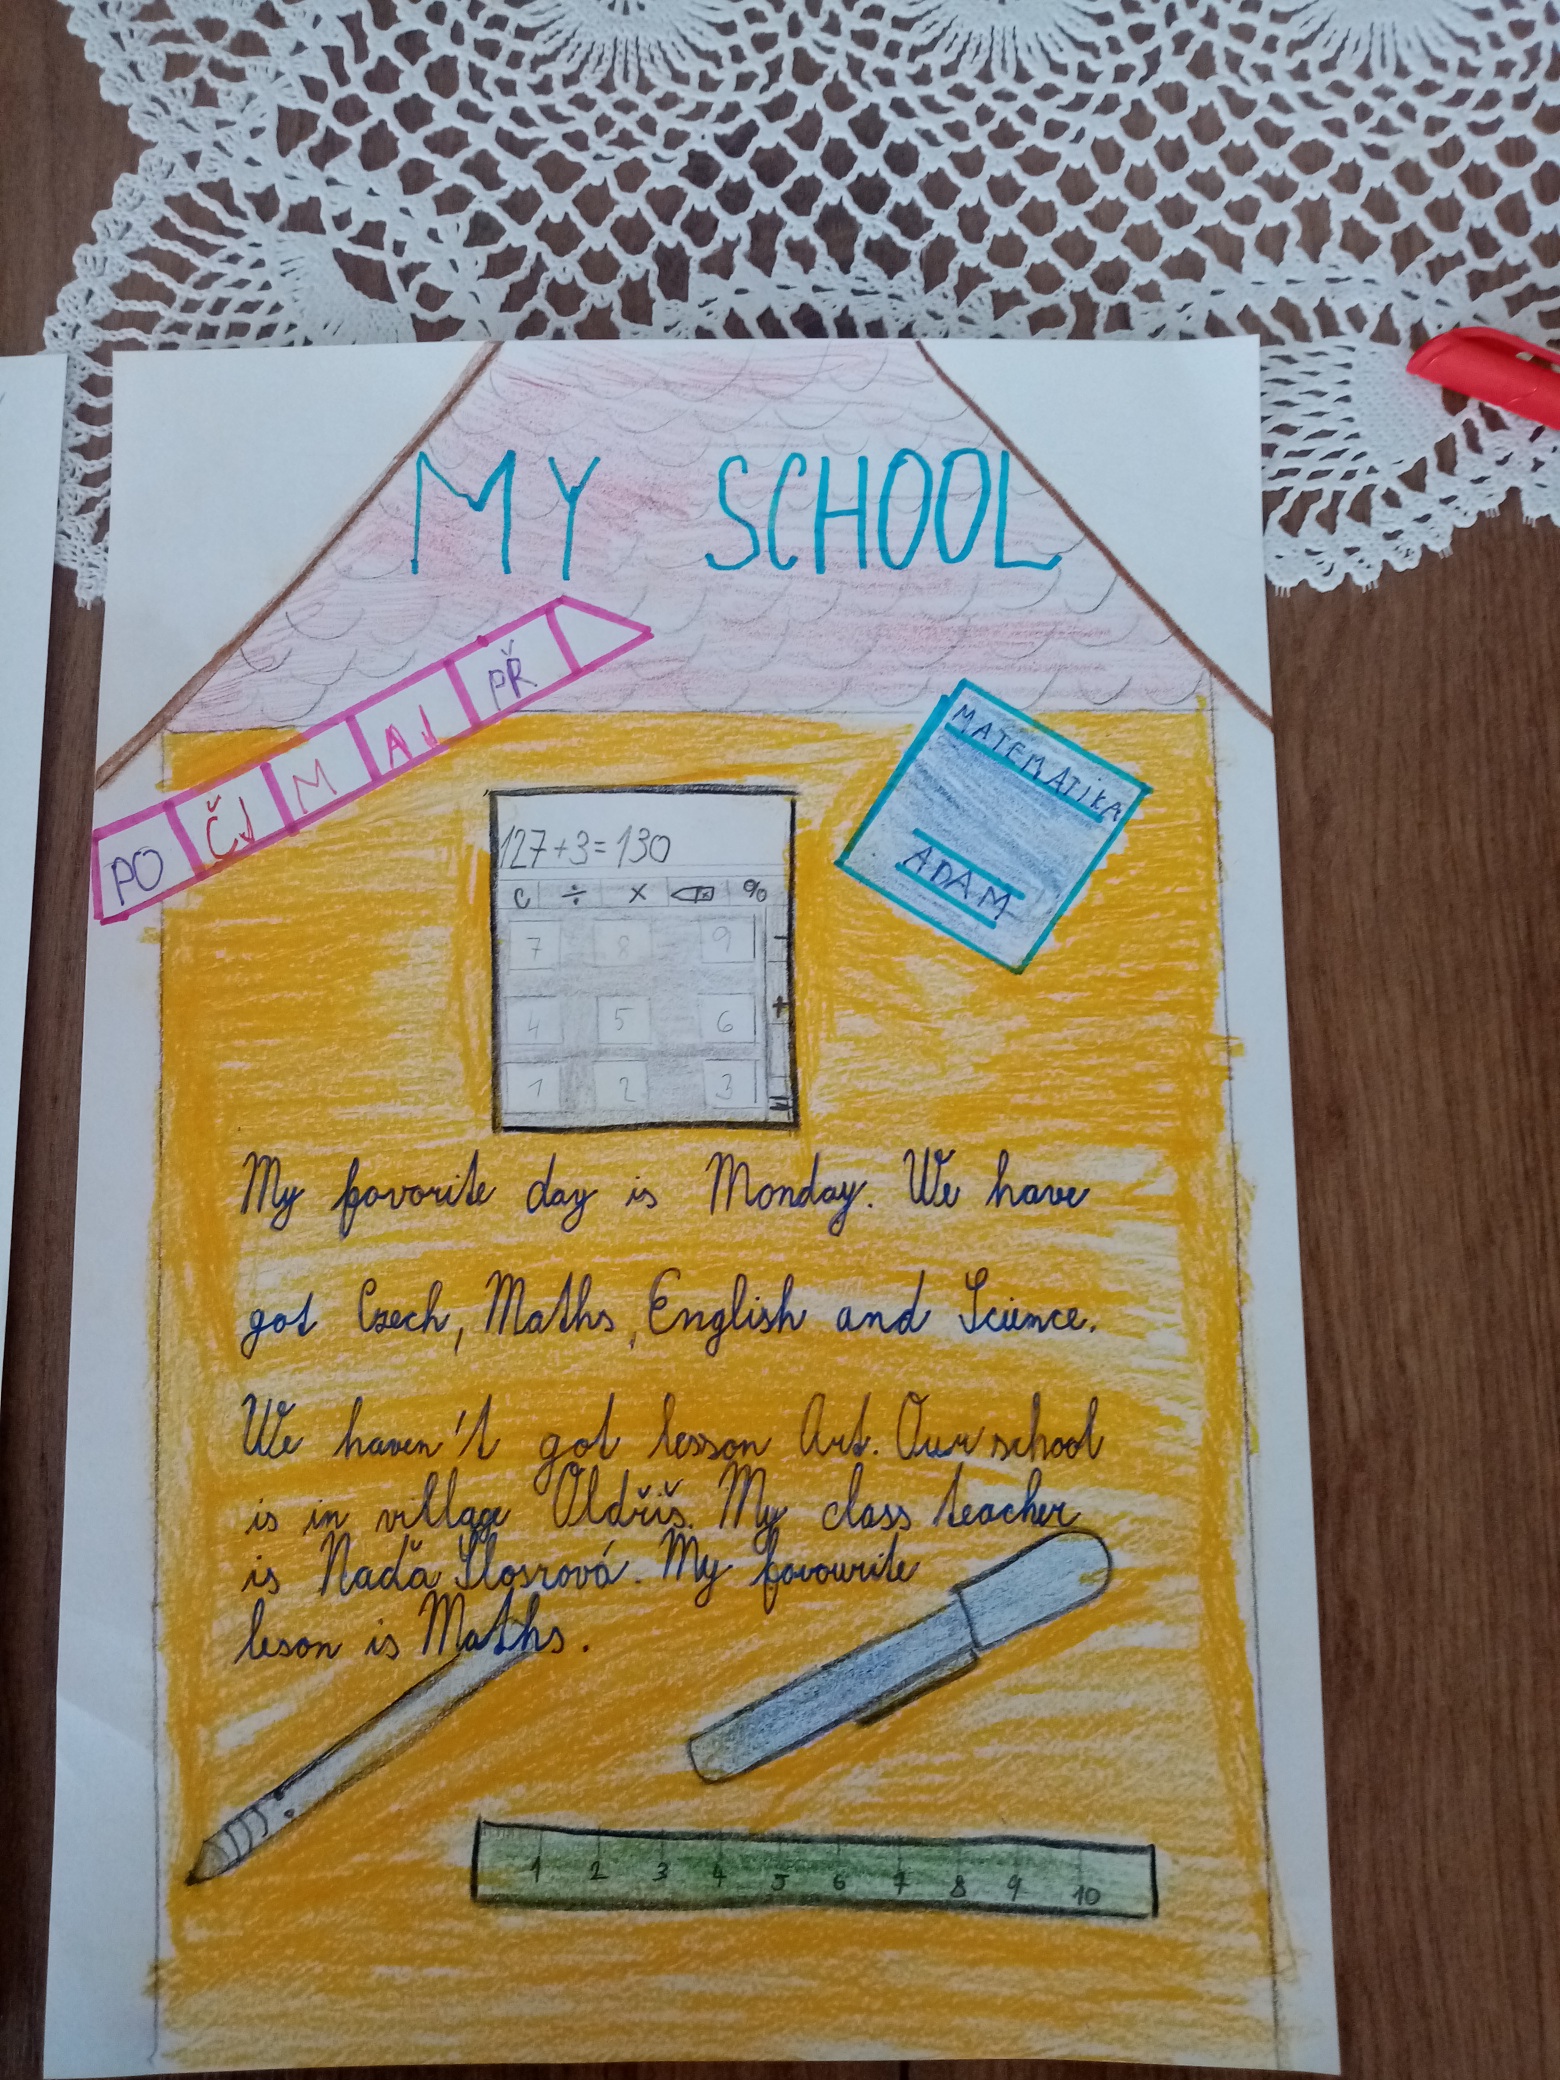 MY SCHOOL
PO ČJ M AJ PŘ
MATEMATiKA
ADAM
127+3=130
C ÷ x %
7 8 9 -
4 5 6 +
1 2 3 =
My favorite day is Monday. We have
got Czech, Maths, English and Science.
We haven't got lesson Art. Our school
is in village Oldřiš. My class teacher
is Naďa Šlosrová. My favourite
leson is Maths.
1 2 3 4 5 6 7 8 9 10